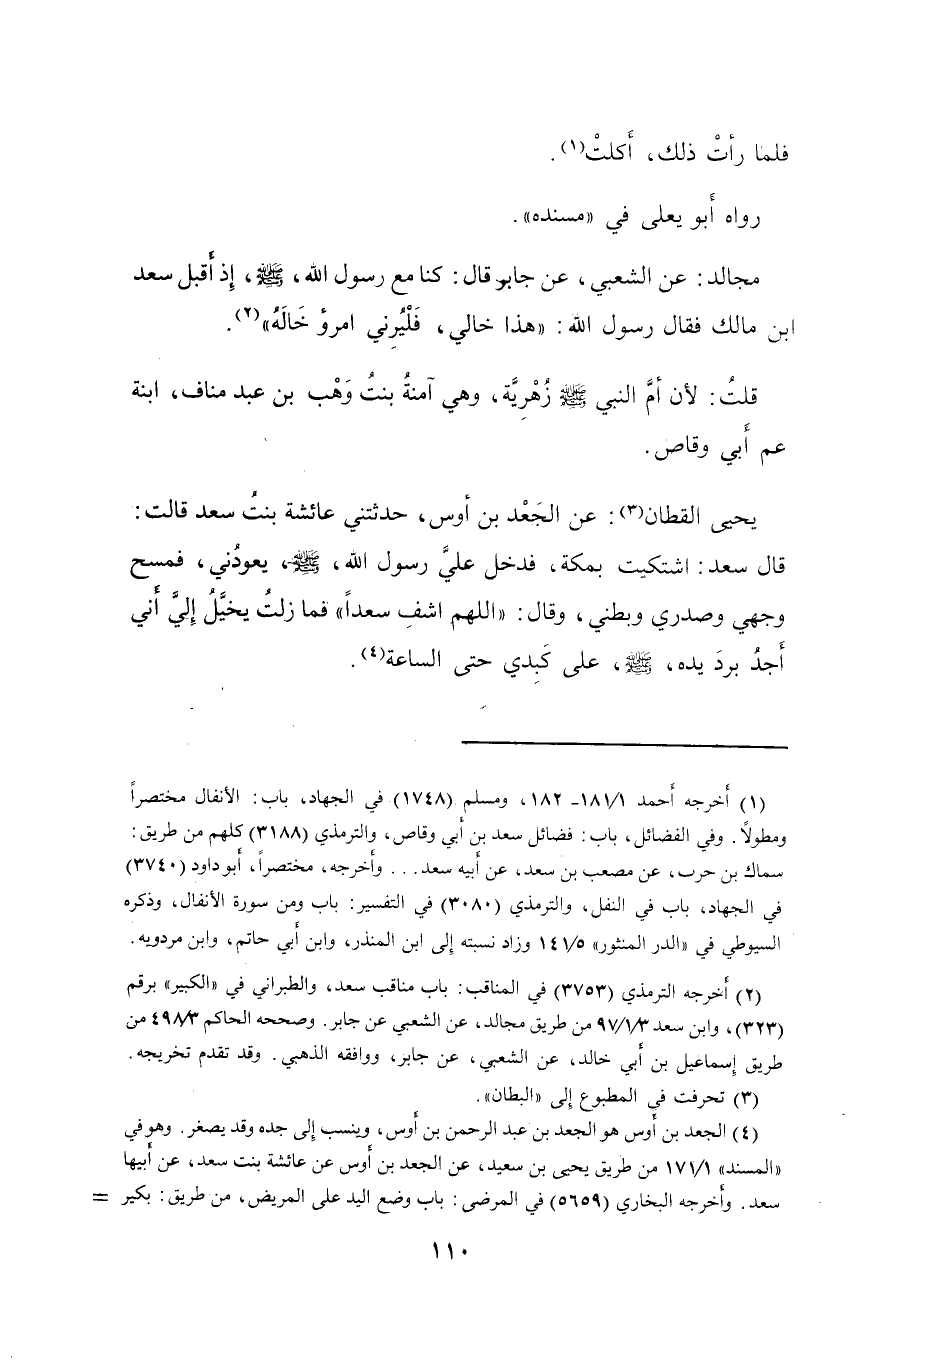 فلما رأتْ ذلك، أَكلتْ(١).
رواه أَبو يعلى في «مسنده».
مجالد: عن الشعبي، عن جابر قال: كنا مع رسول الله، ﷺ، إِذ أَقبل سعد
ابن مالك فقال رسول الله: «هذا خالي، فَلْيُرِني امرؤ خَالَهُ»(٢).
قلتُ: لأن أمَّ النبي ﷺ زُهْرِيَّة، وهي آمنةُ بنتُ وَهْب بن عبد مناف، ابنة
عم أَبي وقاص.
يحيى القطان(٣): عن الجَعْد بن أوس، حدثتني عائشة بنتُ سعد قالت:
قال سعد: اشتكيت بمكة، فدخل عليَّ رسول الله، ﷺ، يعودُني، فمسح
وجهي وصدري وبطني، وقال: «اللهم اشفِ سعداً» فما زلتُ يخيَّلُ إِليَّ أَني
أَجدُ بردَ يده، ﷺ، على كَبِدي حتى الساعة(٤).
(١) أَخرجه أَحمد ١٨١/١ـ ١٨٢، ومسلم (١٧٤٨) في الجهاد، باب: الأنفال مختصراً
ومطولاً. وفي الفضائل، باب: فضائل سعد بن أَبي وقاص، والترمذي (٣١٨٨) كلهم من طريق:
سماك بن حرب، عن مصعب بن سعد، عن أَبيه سعد... وأَخرجه، مختصراً، أَبو داود (٣٧٤٠)
في الجهاد، باب في النفل، والترمذي (٣٠٨٠) في التفسير: باب ومن سورة الأنفال، وذكره
السيوطي في «الدر المنثور» ١٤١/٥ وزاد نسبته إلى ابن المنذر، وابن أَبي حاتم، وابن مردويه.
(٢) أَخرجه الترمذي (٣٧٥٣) في المناقب: باب مناقب سعد، والطبراني في «الكبير» برقم
(٣٢٣)، وابن سعد ٩٧/١/٣ من طريق مجالد، عن الشعبي عن جابر. وصححه الحاكم ٤٩٨/٣ من
طريق إِسماعيل بن أَبي خالد، عن الشعبي، عن جابر، ووافقه الذهبي. وقد تقدم تخريجه.
(٣) تحرفت في المطبوع إلى «البطان».
(٤) الجعد بن أَوس هو الجعد بن عبد الرحمن بن أَوس، وينسب إلى جده وقد يصغر. وهو في
«المسند» ١٧١/١ من طريق يحيى بن سعيد، عن الجعد بن أَوس عن عائشة بنت سعد، عن أَبيها
سعد. وأَخرجه البخاري (٥٦٥٩) في المرضى: باب وضع اليد على المريض، من طريق: بكير =
١١٠